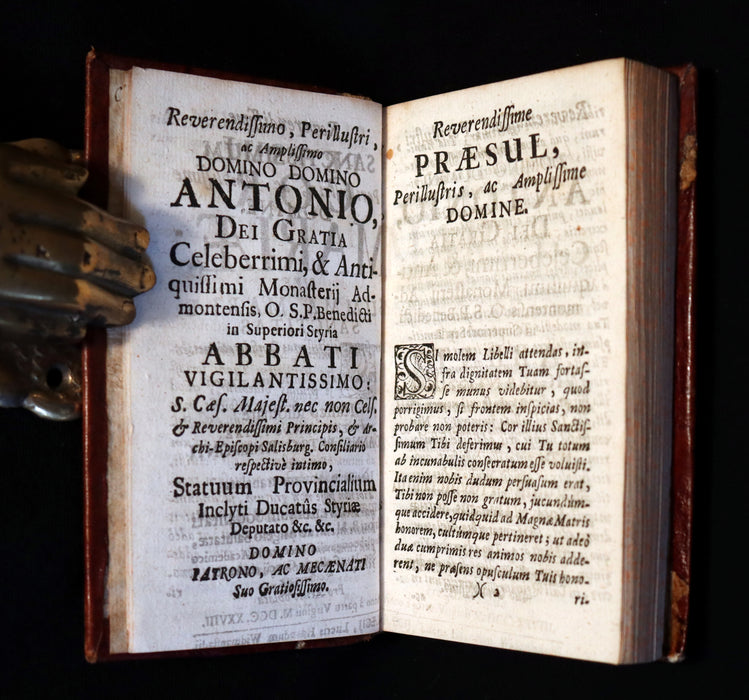 Reverendissimo, Perillustri,
ac Amplissimo
DOMINO DOMINO
ANTONIO,
DEI GRATIA
Celeberrimi, & Anti-
quissimi Monasterij Ad-
montensis, O. S.P. Benedicti
in Superiori Styria
ABBATI
VIGILANTISSIMO:
S. Cæs. Majest. nec non Cels.
& Reverendissimi Principis, & Ar-
chi-Episcopi Salisburg. Consiliario
respectivè intimo,
Statuum Provincialium
Inclyti Ducatûs Styriæ
Deputato &c. &c.
DOMINO
PATRONO, AC MECÆNATI
Suo Gratiosissimo.
Reverendissime
PRÆSUL,
Perillustris, ac Amplissime
DOMINE.
SI molem Libelli attendas, in-
fra dignitatem Tuam fortas-
se munus videbitur, quod
porrigimus, si frontem inspicias, non
probare non poteris: Cor illius Sanctis-
simum Tibi deferimus, cui Tu totum
ab incunabulis consecratum esse voluisti.
Ita enim nobis dudum persuasum erat,
Tibi non posse non gratum, jucundúm-
que accidere, quidquid ad Magnæ Matris
honorem, cultúmque pertineret; ut adeò
dua cumprimis res animos nobis adde-
rent, ne præsens opusculum Tuis hono-
)( 2
ri-